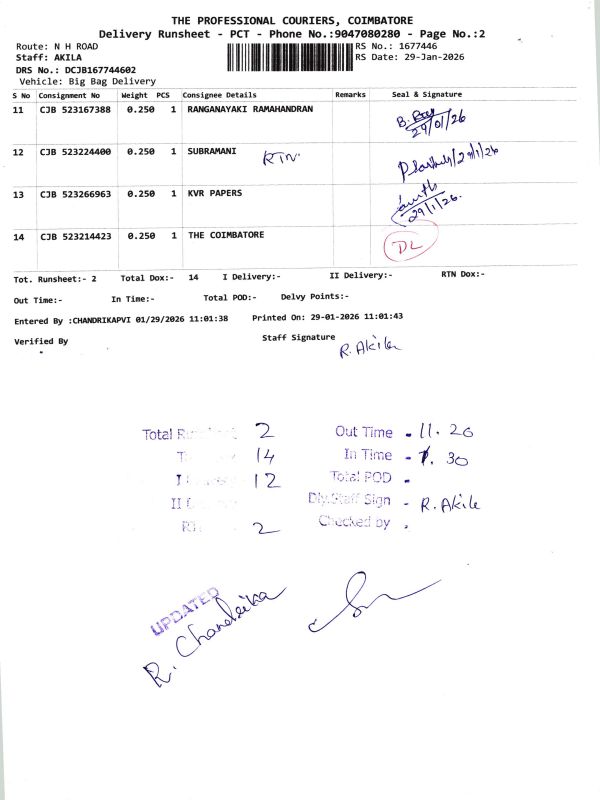 THE PROFESSIONAL COURIERS, COIMBATORE
Delivery Runsheet - PCT - Phone No.:9047080280 - Page No.:2
Route: N H ROAD RS No.: 1677446
Staff: AKILA RS Date: 29-Jan-2026
DRS No.: DCJB167744602
Vehicle: Big Bag Delivery
S No Consignment No Weight PCS Consignee Details Remarks Seal & Signature
11 CJB 523167388 0.250 1 RANGANAYAKI RAMAHANDRAN B.
29/01/26
12 CJB 523224400 0.250 1 SUBRAMANI RTN 29/1/26
13 CJB 523266963 0.250 1 KVR PAPERS
29/1/26.
14 CJB 523214423 0.250 1 THE COIMBATORE DL
Tot. Runsheet:- 2 Total Dox:- 14 I Delivery:- II Delivery:- RTN Dox:-
Out Time:- In Time:- Total POD:- Delvy Points:-
Entered By :CHANDRIKAPVI 01/29/2026 11:01:38 Printed On: 29-01-2026 11:01:43
Verified By Staff Signature R. Akila
Total 2 Out Time - 11. 20
14 In Time - 1. 30
I 12 Total POD -
II Dly.Staff Sign - R. Akila
2 Checked by .
UPDATED
R. Chandrika